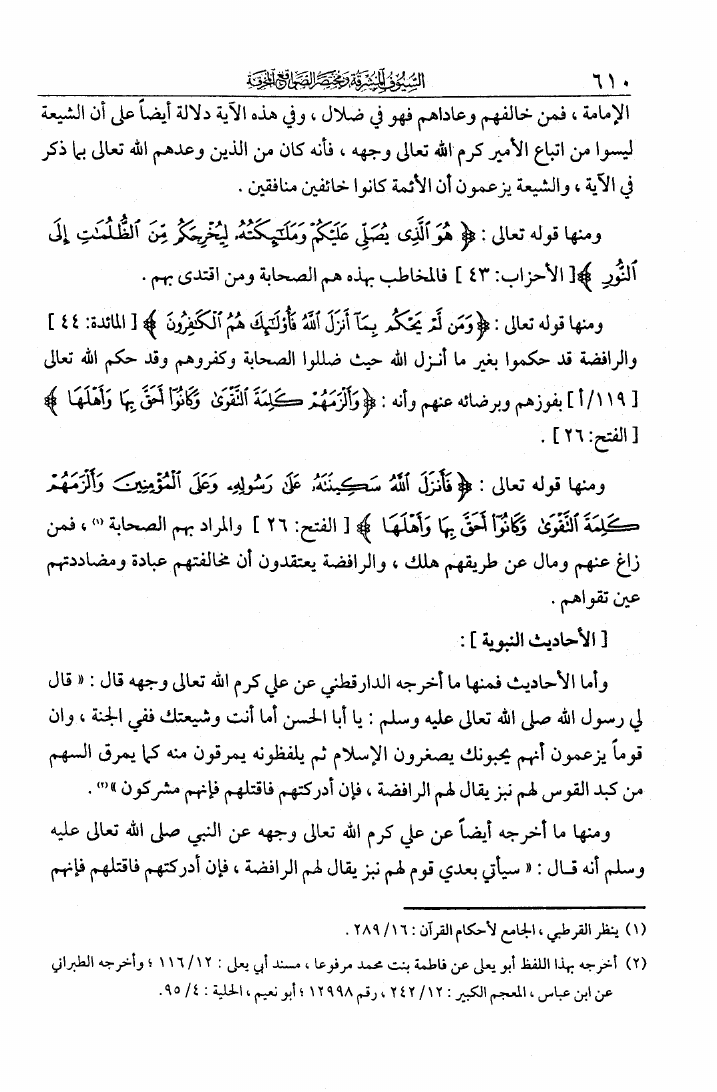 ٦١٠ السيوف المشرقة ومختصر الصواقع المحرقة
الإمامة ، فمن خالفهم وعاداهم فهو في ضلال ، وفي هذه الآية دلالة أيضاً على أن الشيعة
ليسوا من اتباع الأمير كرم الله تعالى وجهه ، فأنه كان من الذين وعدهم الله تعالى بما ذكر
في الآية ، والشيعة يزعمون أن الأئمة كانوا خائفين منافقين .
ومنها قوله تعالى : ﴿ هُوَ ٱلَّذِى يُصَلِّى عَلَيْكُمْ وَمَلَٰٓئِكَتُهُۥ لِيُخْرِجَكُم مِّنَ ٱلظُّلُمَٰتِ إِلَى
ٱلنُّورِ ﴾[ الأحزاب: ٤٣ ] فالمخاطب بهذه هم الصحابة ومن اقتدى بهم .
ومنها قوله تعالى : ﴿ وَمَن لَّمْ يَحْكُم بِمَآ أَنزَلَ ٱللَّهُ فَأُوْلَٰٓئِكَ هُمُ ٱلْكَٰفِرُونَ ﴾ [ المائدة: ٤٤ ]
والرافضة قد حكموا بغير ما أنـزل الله حيث ضللوا الصحابة وكفروهم وقد حكم الله تعالى
[ ١١٩/أ ] بفوزهم وبرضائه عنهم وأنه : ﴿ وَأَلْزَمَهُمْ كَلِمَةَ ٱلتَّقْوَىٰ وَكَانُوٓا۟ أَحَقَّ بِهَا وَأَهْلَهَا ﴾
[ الفتح: ٢٦ ] .
ومنها قوله تعالى : ﴿ فَأَنزَلَ ٱللَّهُ سَكِينَتَهُۥ عَلَىٰ رَسُولِهِۦ وَعَلَى ٱلْمُؤْمِنِينَ وَأَلْزَمَهُمْ
كَلِمَةَ ٱلتَّقْوَىٰ وَكَانُوٓا۟ أَحَقَّ بِهَا وَأَهْلَهَا ﴾ [ الفتح: ٢٦ ] والمراد بهم الصحابة (١) ، فمن
زاغ عنهم ومال عن طريقهم هلك ، والرافضة يعتقدون أن مخالفتهم عبادة ومضاددتهم
عين تقواهم .
[ الأحاديث النبوية ] :
وأما الأحاديث فمنها ما أخرجه الدارقطني عن علي كرم الله تعالى وجهه قال : « قال
لي رسول الله صلى الله تعالى عليه وسلم : يا أبا الحسن أما أنت وشيعتك ففي الجنة ، وان
قوماً يزعمون أنهم يحبونك يصغرون الإسلام ثم يلفظونه يمرقون منه كما يمرق السهم
من كبد القوس لهم نبز يقال لهم الرافضة ، فإن أدركتهم فاقتلهم فإنهم مشركون »(٢) .
ومنها ما أخرجه أيضاً عن علي كرم الله تعالى وجهه عن النبي صلى الله تعالى عليه
وسلم أنه قـال : « سيأتي بعدي قوم لهم نبز يقال لهم الرافضة ، فإن أدركتهم فاقتلهم فإنهم
(١) ينظر القرطبي ، الجامع لأحكام القرآن : ١٦/ ٢٨٩ .
(٢) أخرجه بهذا اللفظ أبو يعلى عن فاطمة بنت محمد مرفوعا ، مسند أبي يعلى : ١٢/ ١١٦ ؛ وأخرجه الطبراني
عن ابن عباس ، المعجم الكبير : ١٢/ ٢٤٢ ، رقم ١٢٩٩٨ ؛ أبو نعيم ، الحلية : ٤/ ٩٥.